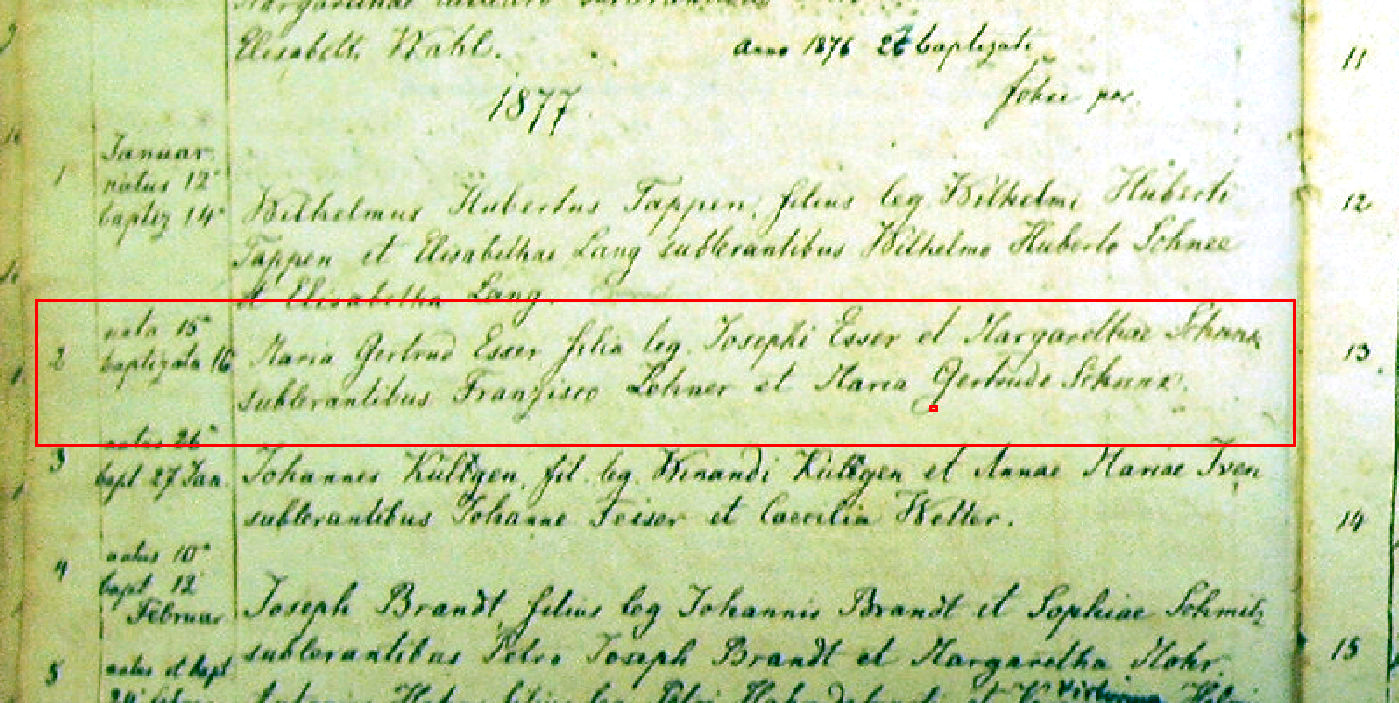 Elisabeth Wahl. Anno 1876 26 baptizati
1877.
Januar
1 natus 12ᵃ
baptiz 14ᵃ
Wilhelmus Hubertus Tappen, filius leg. Wilhelmi Huberti
Tappen et Elisabethae Lang sublevantibus Wilhelmo Huberto Schnee
et Elisabetha Lang.
nata 15ᵃ
2 baptizata 16
Maria Gertrud Esser filia leg. Josephi Esser et Margarethae Schunk
sublevantibus Franzisco Löhner et Maria Gertrude Schunk.
natus 26ᵃ
3 bapt 27 Jan.
Johannes Kültgen, fil. leg. Winandi Kültgen et Annae Mariae Iven
sublevantibus Johanne Feiser et Caecilia Welter.
natus 10ᵃ
4 bapt 12
Februar
Joseph Brandt, filius leg Johannis Brandt et Sophiae Schmitz
sublevantibus Petro Joseph Brandt et Margaretha Mohr.
5 natus et bapt
11
12
13
14
15